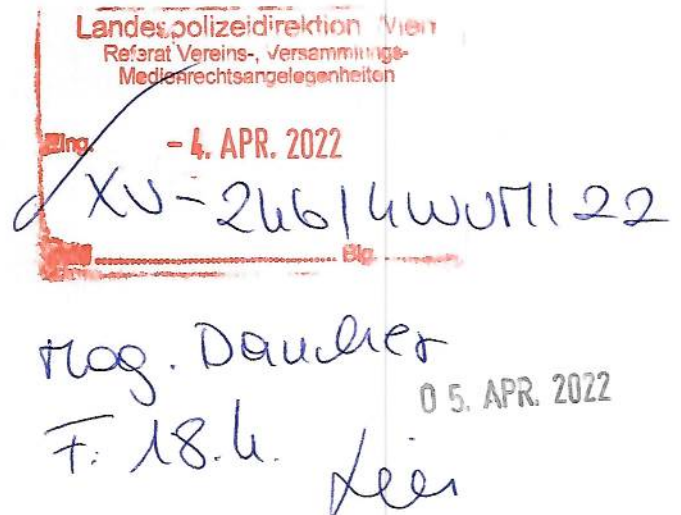 Landespolizeidirektion Wien
Referat Vereins-, Versammlungs-
Medienrechtsangelegenheiten
Eing. - 4. APR. 2022
XV-246/4WVM/22
Blg.
Mag. Daucher
05. APR. 2022
F: 18.4.